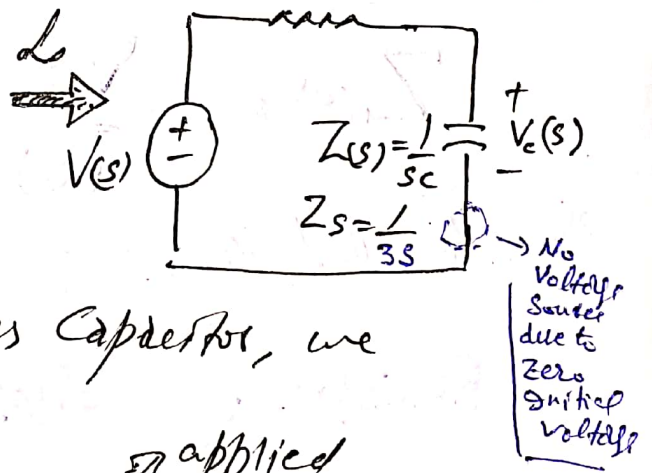 ℒ
+
-
V(s)
Z(s)=1/sc
Zs=1/3s
+
Vc(s)
-
→ No
Voltage
Source
due to
Zero
Initial
Voltage
s Capacitor, we
applied